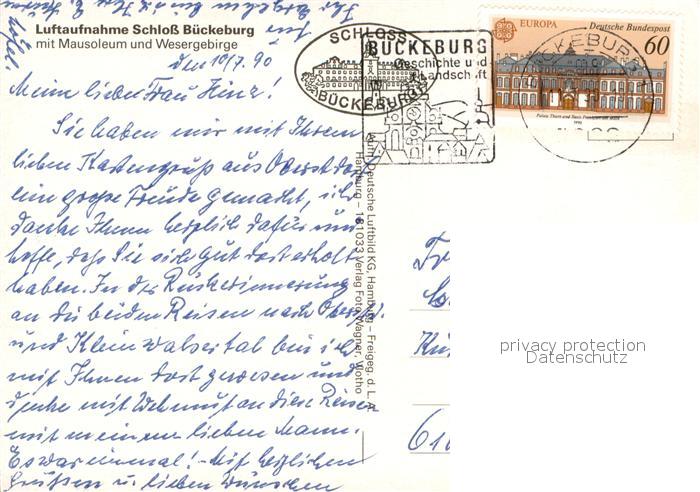 Luftaufnahme Schloß Bückeburg
mit Mausoleum und Wesergebirge
den 10/7. 90
Meine lieben Frau Hinz!
Sie haben mir mit Ihrem
lieben Kartengruß aus Oberstdorf
eine große Freude gemacht, ich
danke Ihnen herzlich dafür und
hoffe, daß Sie sich gut dort erholt
haben. In der Rückerinnerung
an die beiden Reisen nach Oberstd.
und Kleinwalsertal bin ich
mit Ihnen dort gewesen und
denke mit Wehmut an diese Reisen
mit meinem lieben Mann.
Es war einmal! - Mit herzlichen
Grüßen u. lieben Wünschen
SCHLOSS
BÜCKEBURG
BÜCKEBURG
Geschichte und
Landschaft
EUROPA
Deutsche Bundespost
60
Palais Thurn und Taxis Frankfurt am Main
1990
BÜCKEBURG
Aufn. Deutsche Luftbild KG, Hamburg – Freigeg. d. L. A.
Hamburg – 181033 Verlag Foto Wagner, Vlotho
privacy protection
Datenschutz